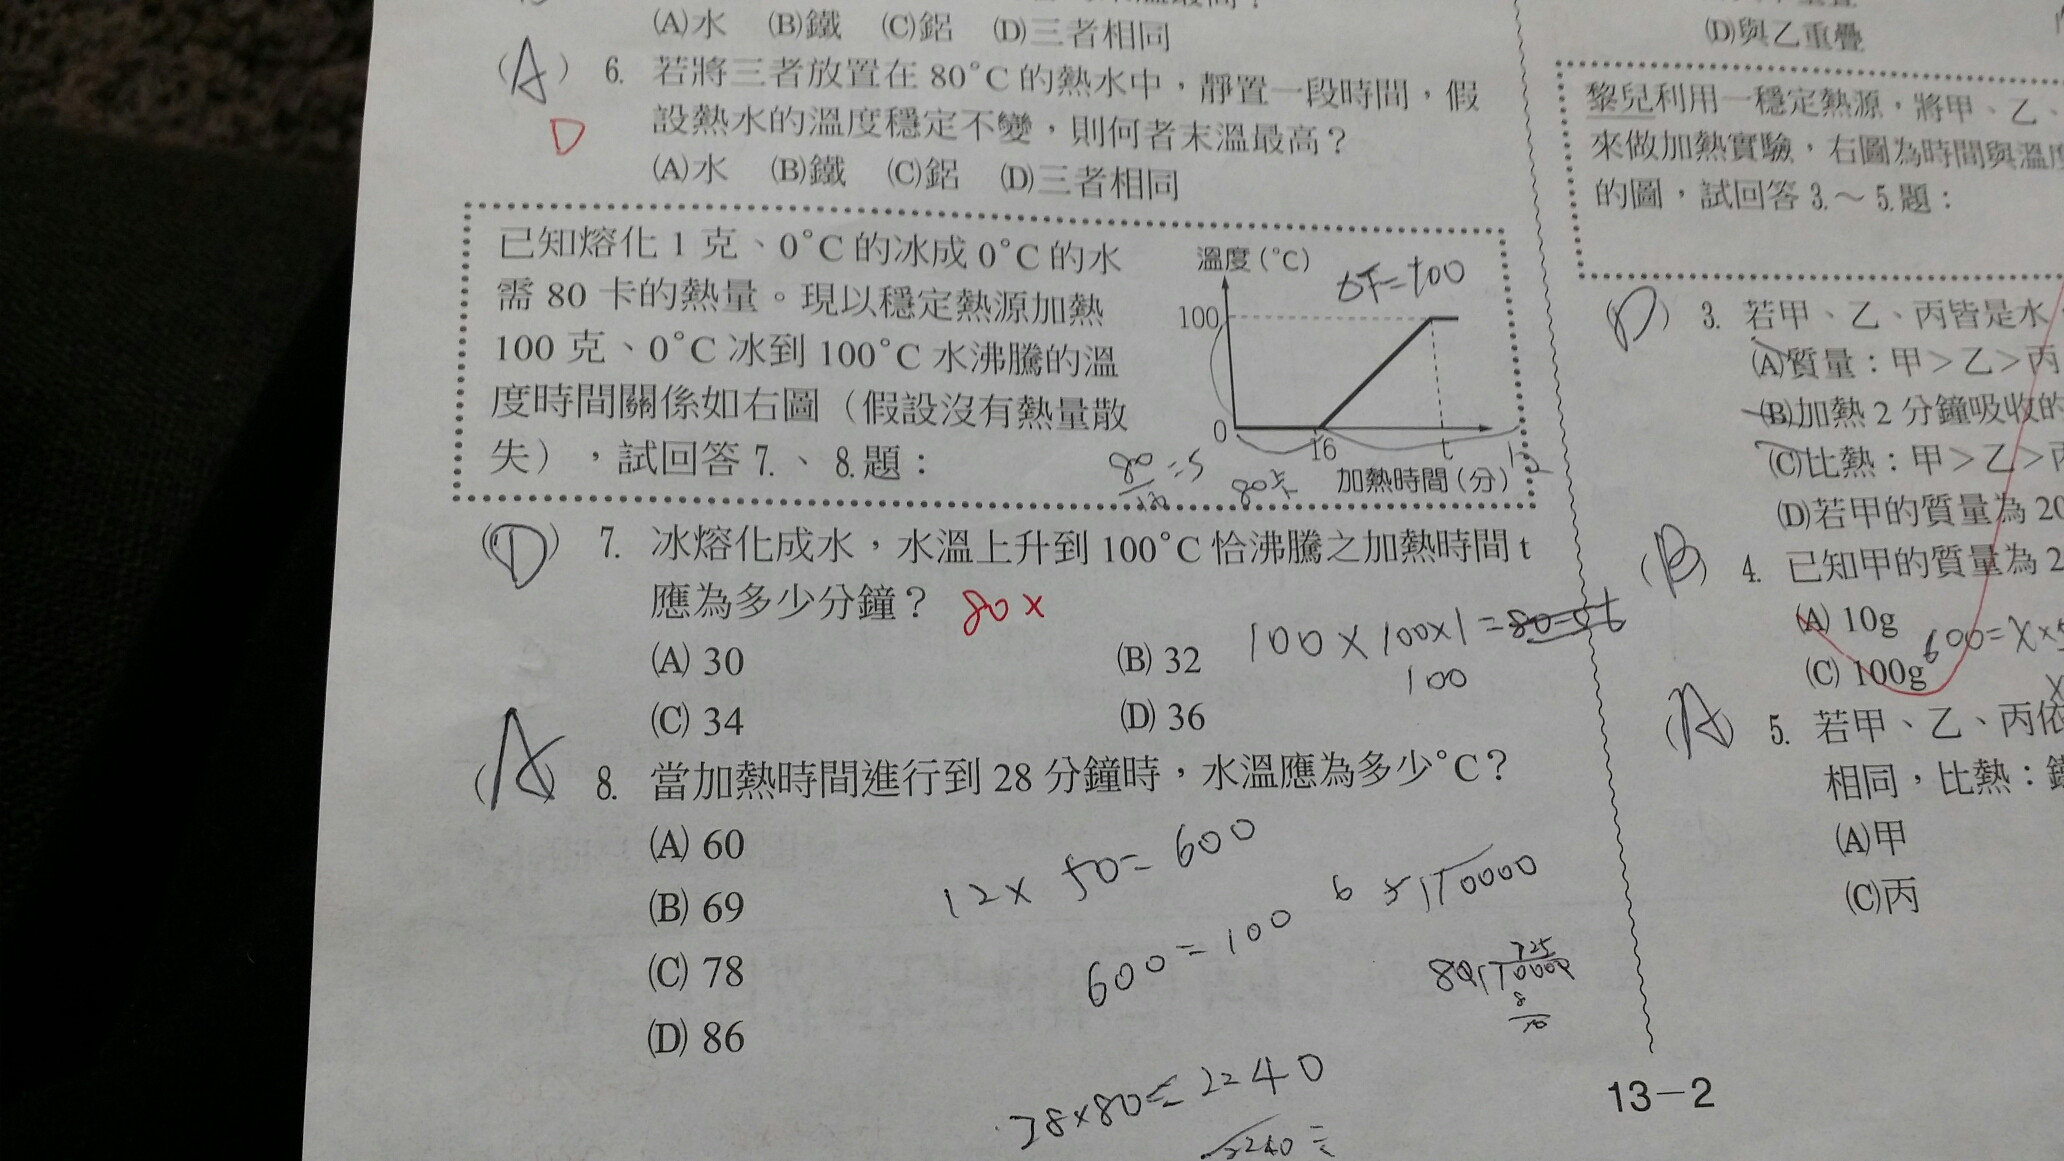 (A)水 (B)鐵 (C)鋁 (D)三者相同
(A) 6. 若將三者放置在80°C的熱水中，靜置一段時間，假
設熱水的溫度穩定不變，則何者末溫最高？
D
(A)水 (B)鐵 (C)鋁 (D)三者相同
已知熔化1克、0°C的冰成0°C的水
需80卡的熱量。現以穩定熱源加熱
100克、0°C冰到100°C水沸騰的溫
度時間關係如右圖（假設沒有熱量散
失），試回答7.、8.題：
溫度(°C)
ΔT=100
100
0
16
t
加熱時間(分)
80卡
(D) 7. 冰熔化成水，水溫上升到100°C恰沸騰之加熱時間t
應為多少分鐘？ 80x
(A) 30 (B) 32
(C) 34 (D) 36
100×100×1=
100
(A) 8. 當加熱時間進行到28分鐘時，水溫應為多少°C？
(A) 60
(B) 69
(C) 78
(D) 86
12×50=600
600=100
(D)與乙重疊
黎兒利用一穩定熱源，將甲、乙、
來做加熱實驗，右圖為時間與溫度
的圖，試回答3.～5.題：
(D) 3. 若甲、乙、丙皆是水
(A)質量：甲>乙>丙
(B)加熱2分鐘吸收的
(C)比熱：甲>乙>丙
(D)若甲的質量為20
(B) 4. 已知甲的質量為2
(A) 10g
(C) 100g
600=X×5
(A) 5. 若甲、乙、丙依
相同，比熱：鐵
(A)甲
(C)丙
13-2